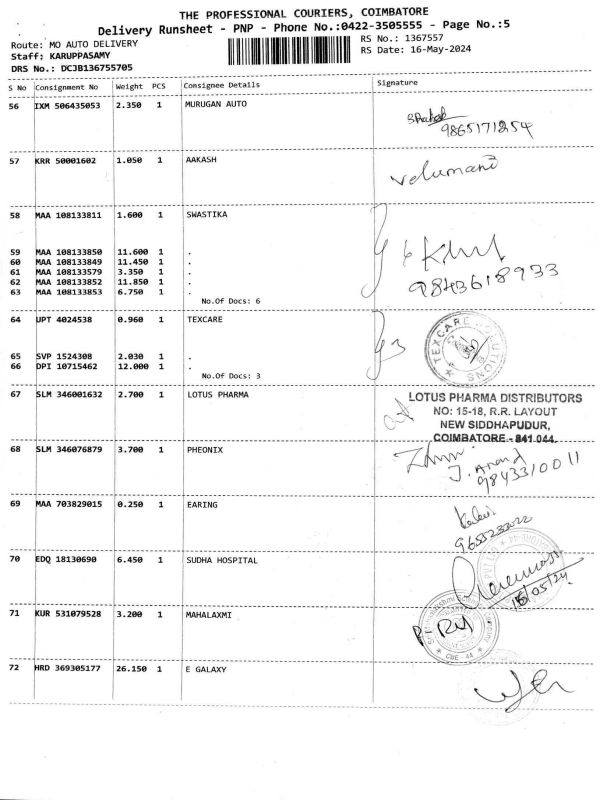 THE PROFESSIONAL COURIERS, COIMBATORE
Delivery Runsheet - PNP - Phone No.:0422-3505555 - Page No.:5
Route: MO AUTO DELIVERY
RS No.: 1367557
Staff: KARUPPASAMY
RS Date: 16-May-2024
DRS No.: DCJB136755705
S No Consignment No Weight PCS Consignee Details Signature
56 IXM 506435053 2.350 1 MURUGAN AUTO
9865171254
57 KRR 50001602 1.050 1 AAKASH
Velumani
58 MAA 108133811 1.600 1 SWASTIKA
59 MAA 108133850 11.600 1 .
60 MAA 108133849 11.450 1 .
61 MAA 108133579 3.350 1 .
62 MAA 108133852 11.850 1 .
63 MAA 108133853 6.750 1 .
No.Of Docs: 6
6
9843618933
64 UPT 4024538 0.960 1 TEXCARE
65 SVP 1524308 2.030 1 .
66 DPI 10715462 12.000 1 .
No.Of Docs: 3
3
TEXCARE SOLUTIONS
67 SLM 346001632 2.700 1 LOTUS PHARMA
LOTUS PHARMA DISTRIBUTORS
NO: 15-18, R.R. LAYOUT
NEW SIDDHAPUDUR,
COIMBATORE - 641 044.
68 SLM 346076879 3.700 1 PHEONIX
J. Anand
9843310011
69 MAA 703829015 0.250 1 EARING
9655233022
70 EDQ 18130690 6.450 1 SUDHA HOSPITAL
71 KUR 531079508 3.200 1 MAHALAXMI
CBE - 44
72 HRD 369305177 26.150 1 E GALAXY